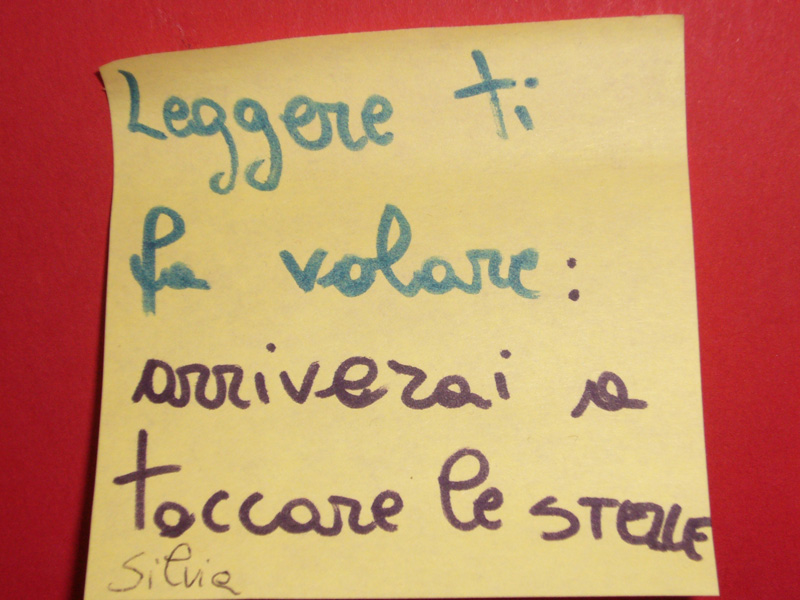 Leggere ti
fa volare:
arriverai a
toccare le STELLE
Silvia